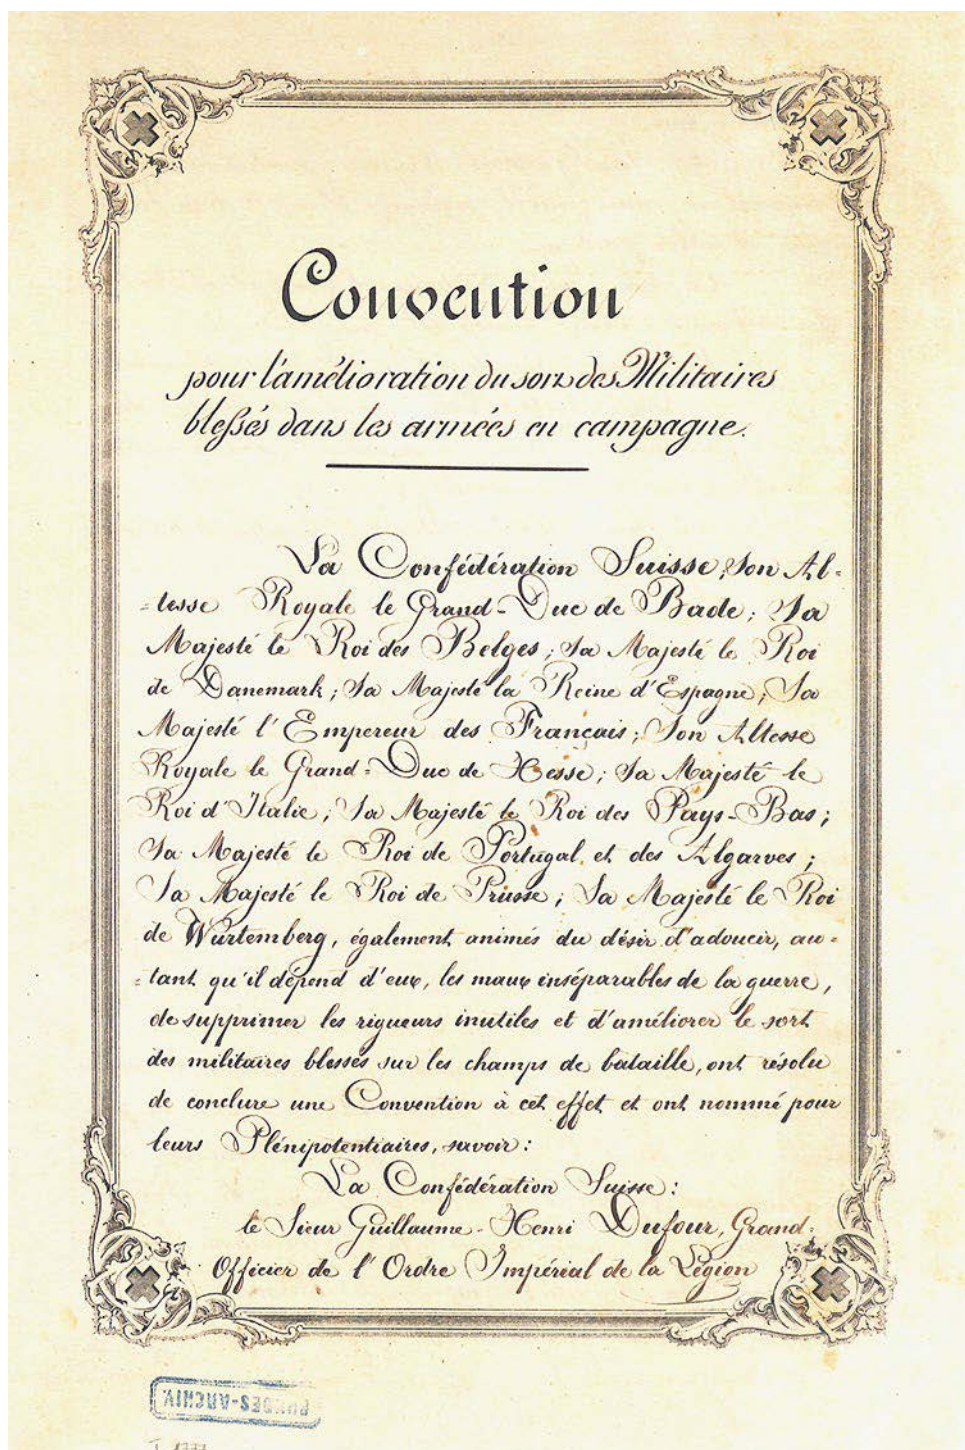 Convention
pour l'amélioration du sort des Militaires
blessés dans les armées en campagne.
La Confédération Suisse; Son Al-
-tesse Royale le Grand-Duc de Bade; Sa
Majesté le Roi des Belges; Sa Majesté le Roi
de Danemark; Sa Majesté la Reine d'Espagne; Sa
Majesté l'Empereur des Français; Son Altesse
Royale le Grand-Duc de Hesse; Sa Majesté le
Roi d'Italie; Sa Majesté le Roi des Pays-Bas;
Sa Majesté le Roi de Portugal et des Algarves;
Sa Majesté le Roi de Prusse; Sa Majesté le Roi
de Würtemberg, également animés du désir d'adoucir, au-
-tant qu'il dépend d'eux, les maux inséparables de la guerre,
de supprimer les rigueurs inutiles et d'améliorer le sort
des militaires blessés sur les champs de bataille, ont résolu
de conclure une Convention à cet effet et ont nommé pour
leurs Plénipotentiaires, savoir:
La Confédération Suisse:
le Sieur Guillaume-Henri Dufour, Grand-
Officier de l'Ordre Impérial de la Légion
BUNDES-ARCHIV